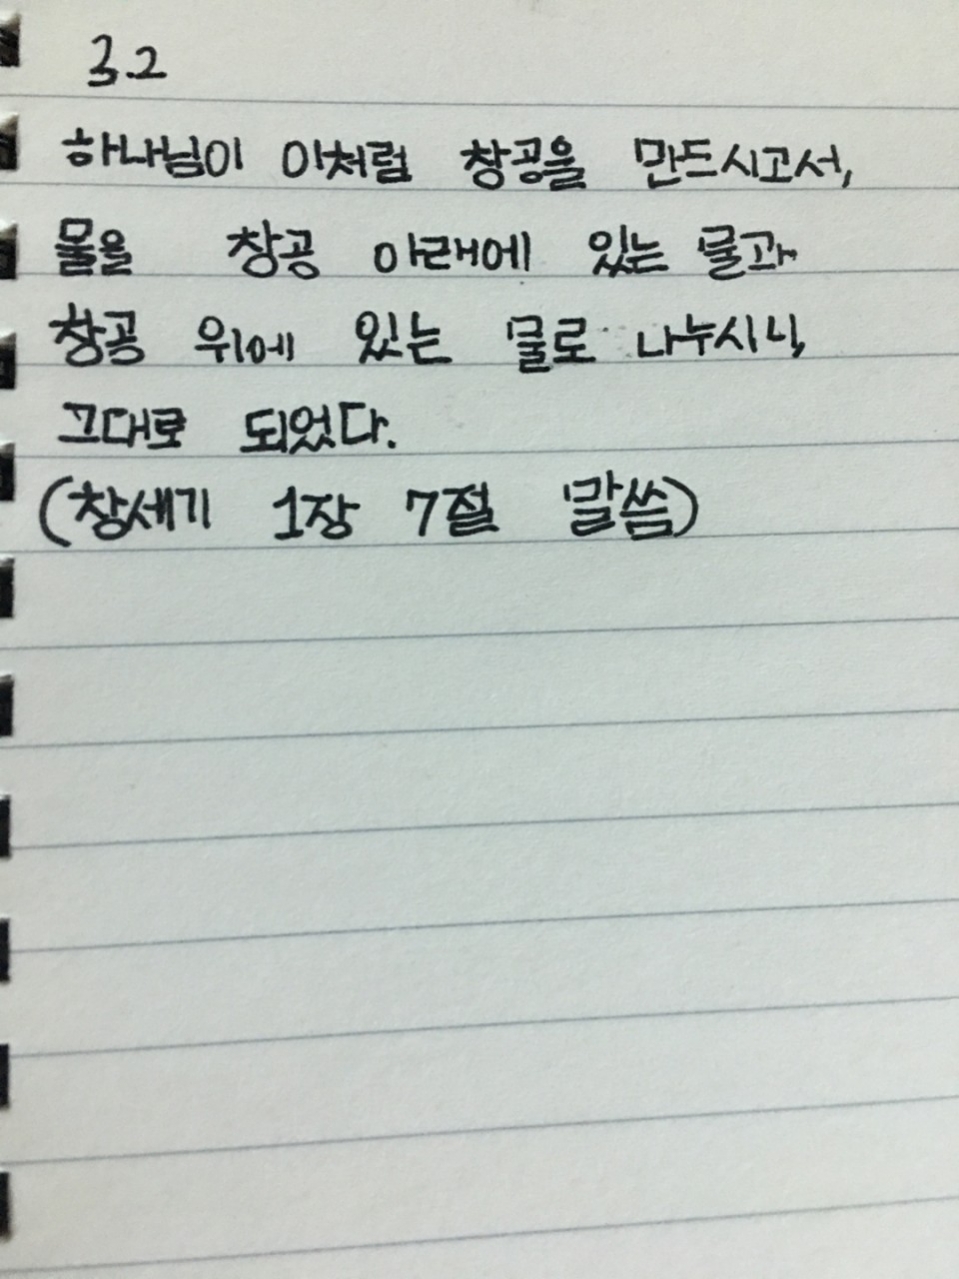 3.2
하나님이 이처럼 창공을 만드시고서,
물을 창공 아래에 있는 물과
창공 위에 있는 물로 나누시니,
그대로 되었다.
(창세기 1장 7절 말씀)